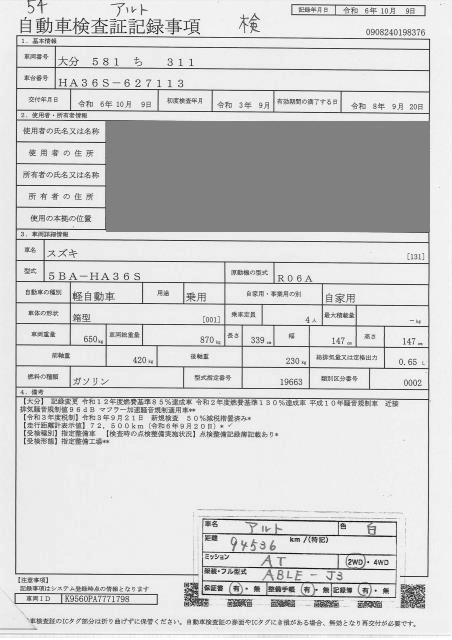 54 アルト
記録年月日 令和 6年10月 9日
自動車検査証記録事項 検
0908240198376
1. 基本情報
車両番号 大分 581 ち 311
車台番号 HA36S-627113
交付年月日 令和 6年10月 9日 初度検査年月 令和 3年 9月 有効期間の満了する日 令和 8年 9月 20日
2. 使用者・所有者情報
使用者の氏名又は名称
使用者の住所
所有者の氏名又は名称
所有者の住所
使用の本拠の位置
3. 車両詳細情報
車名 スズキ [131]
型式 5BA-HA36S 原動機の型式 R06A
自動車の種別 軽自動車 用途 乗用 自家用・事業用の別 自家用
車体の形状 箱型 [001] 乗車定員 4人 最大積載量 -kg
車両重量 650kg 車両総重量 870kg 長さ 339cm 幅 147cm 高さ 147cm
前軸重 420kg 後軸重 230kg 総排気量又は定格出力 0.65 L
燃料の種類 ガソリン 型式指定番号 19663 類別区分番号 0002
4. 備考
【大分】 記録変更 令和12年度燃費基準85%達成車 令和2年度燃費基準130%達成車 平成10年騒音規制車 近接
排気騒音規制値96dB マフラー加速騒音規制適用車**
【令和3年度税制】令和3年9月21日 新規検査 50%減税措置済み*
【走行距離計表示値】72,500km(令和6年9月20日)*
【受検種別】指定整備車 【検査時の点検整備実施状況】点検整備記録簿記載あり*
【受検形態】指定整備工場**
車名 アルト 色 白
距離 94536 km/(特記)
ミッション AT 2WD・4WD
架装・フル型式 ABLE-J3
保証書 有・無 整備手帳 有・無 記録簿 有・無
【注意事項】
記録事項はシステム登録時点の情報となります
車両ID K9560PA7771798
車検査証のICタグ部分は折り曲げずに保管ください。自動車検査証の券面やICタグに合損がある場合、無効となり再交付が必要です。